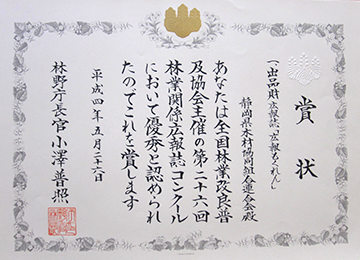 賞状
一、出品財 広報誌「広報もくれん」
静岡県木材協同組合連合会殿
あなたは全国林業改良普
及協会主催の第二十六回
林業関係広報誌コンクール
において優秀と認められ
たのでこれを賞します
平成四年五月二十六日
林野庁長官小澤普照